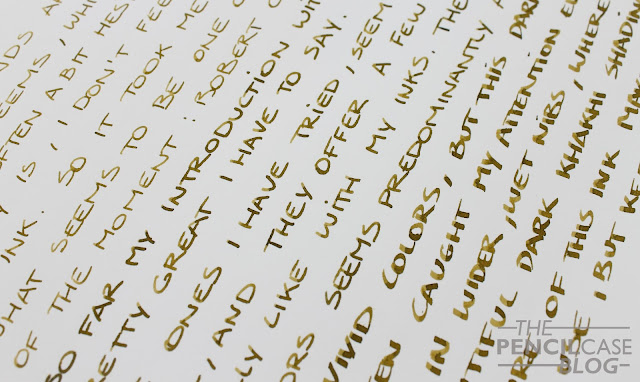 NDS A
SEEMS, WHI
OFTEN A BIT HES
Y IS, I DON'T FEE
INK. SO IT TOOK ME
WHAT SEEMS TO BE ONE O
OF THE MOMENT: ROBERT O
SO FAR MY INTRODUCTION WI
RETTY GREAT I HAVE TO SAY.
ONES I HAVE TRIED, SEEM
, AND THEY OFFER A FEW
LY LIKE WITH MY INKS. THE
ORS SEEMS PREDOMINANTLY A
VIVID COLORS, BUT THIS DARK
EN CAUGHT MY ATTENTION E
IN WIDER, WET NIBS, WHERE
TIFUL DARK KHAKHI SHADIN
RE OF THIS INK MA
UE, BUT KEE
THE
PENCILCASE
BLOG